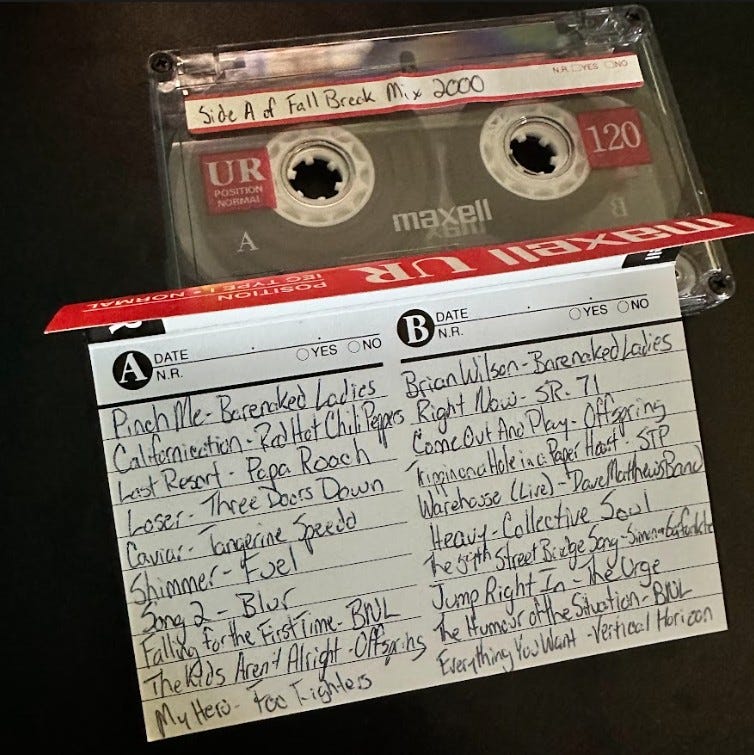 N.R. YES NO
Side A of Fall Break Mix 2000
UR
POSITION
NORMAL
120
maxell
A
B
maxell UR
POSITION
IEC TYPE I • NORMAL
A DATE
N.R. YES NO
Pinch Me - Barenaked Ladies
Californication - Red Hot Chili Peppers
Last Resort - Papa Roach
Loser - Three Doors Down
Caviar - Tangerine Speedo
Shimmer - Fuel
Song 2 - Blur
Falling for the First Time - BNL
The Kids Aren't Alright - Offspring
My Hero - Foo Fighters
B DATE
N.R. YES NO
Brian Wilson - Barenaked Ladies
Right Now - SR-71
Come Out And Play - Offspring
Trippin on a Hole in a Paper Heart - STP
Warehouse (Live) - Dave Matthews Band
Heavy - Collective Soul
The 59th Street Bridge Song - Simon
Jump Right In - The Urge
The Humour of the Situation - BNL
Everything You Want - Vertical Horizon